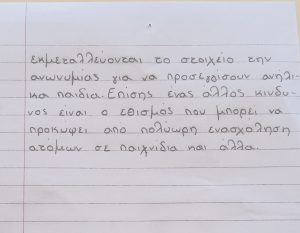 εκμεταλλεύονται το στοιχείο την
ανωνυμίας για να προσεγγίσουν ανήλι-
κα παιδια. Επίσης ένας άλλος κίνδυ-
νος είναι ο εθισμός που μπορεί να
προκύψει απο πολύωρη ενασχόληση
ατόμων σε παιχνίδια και άλλα.